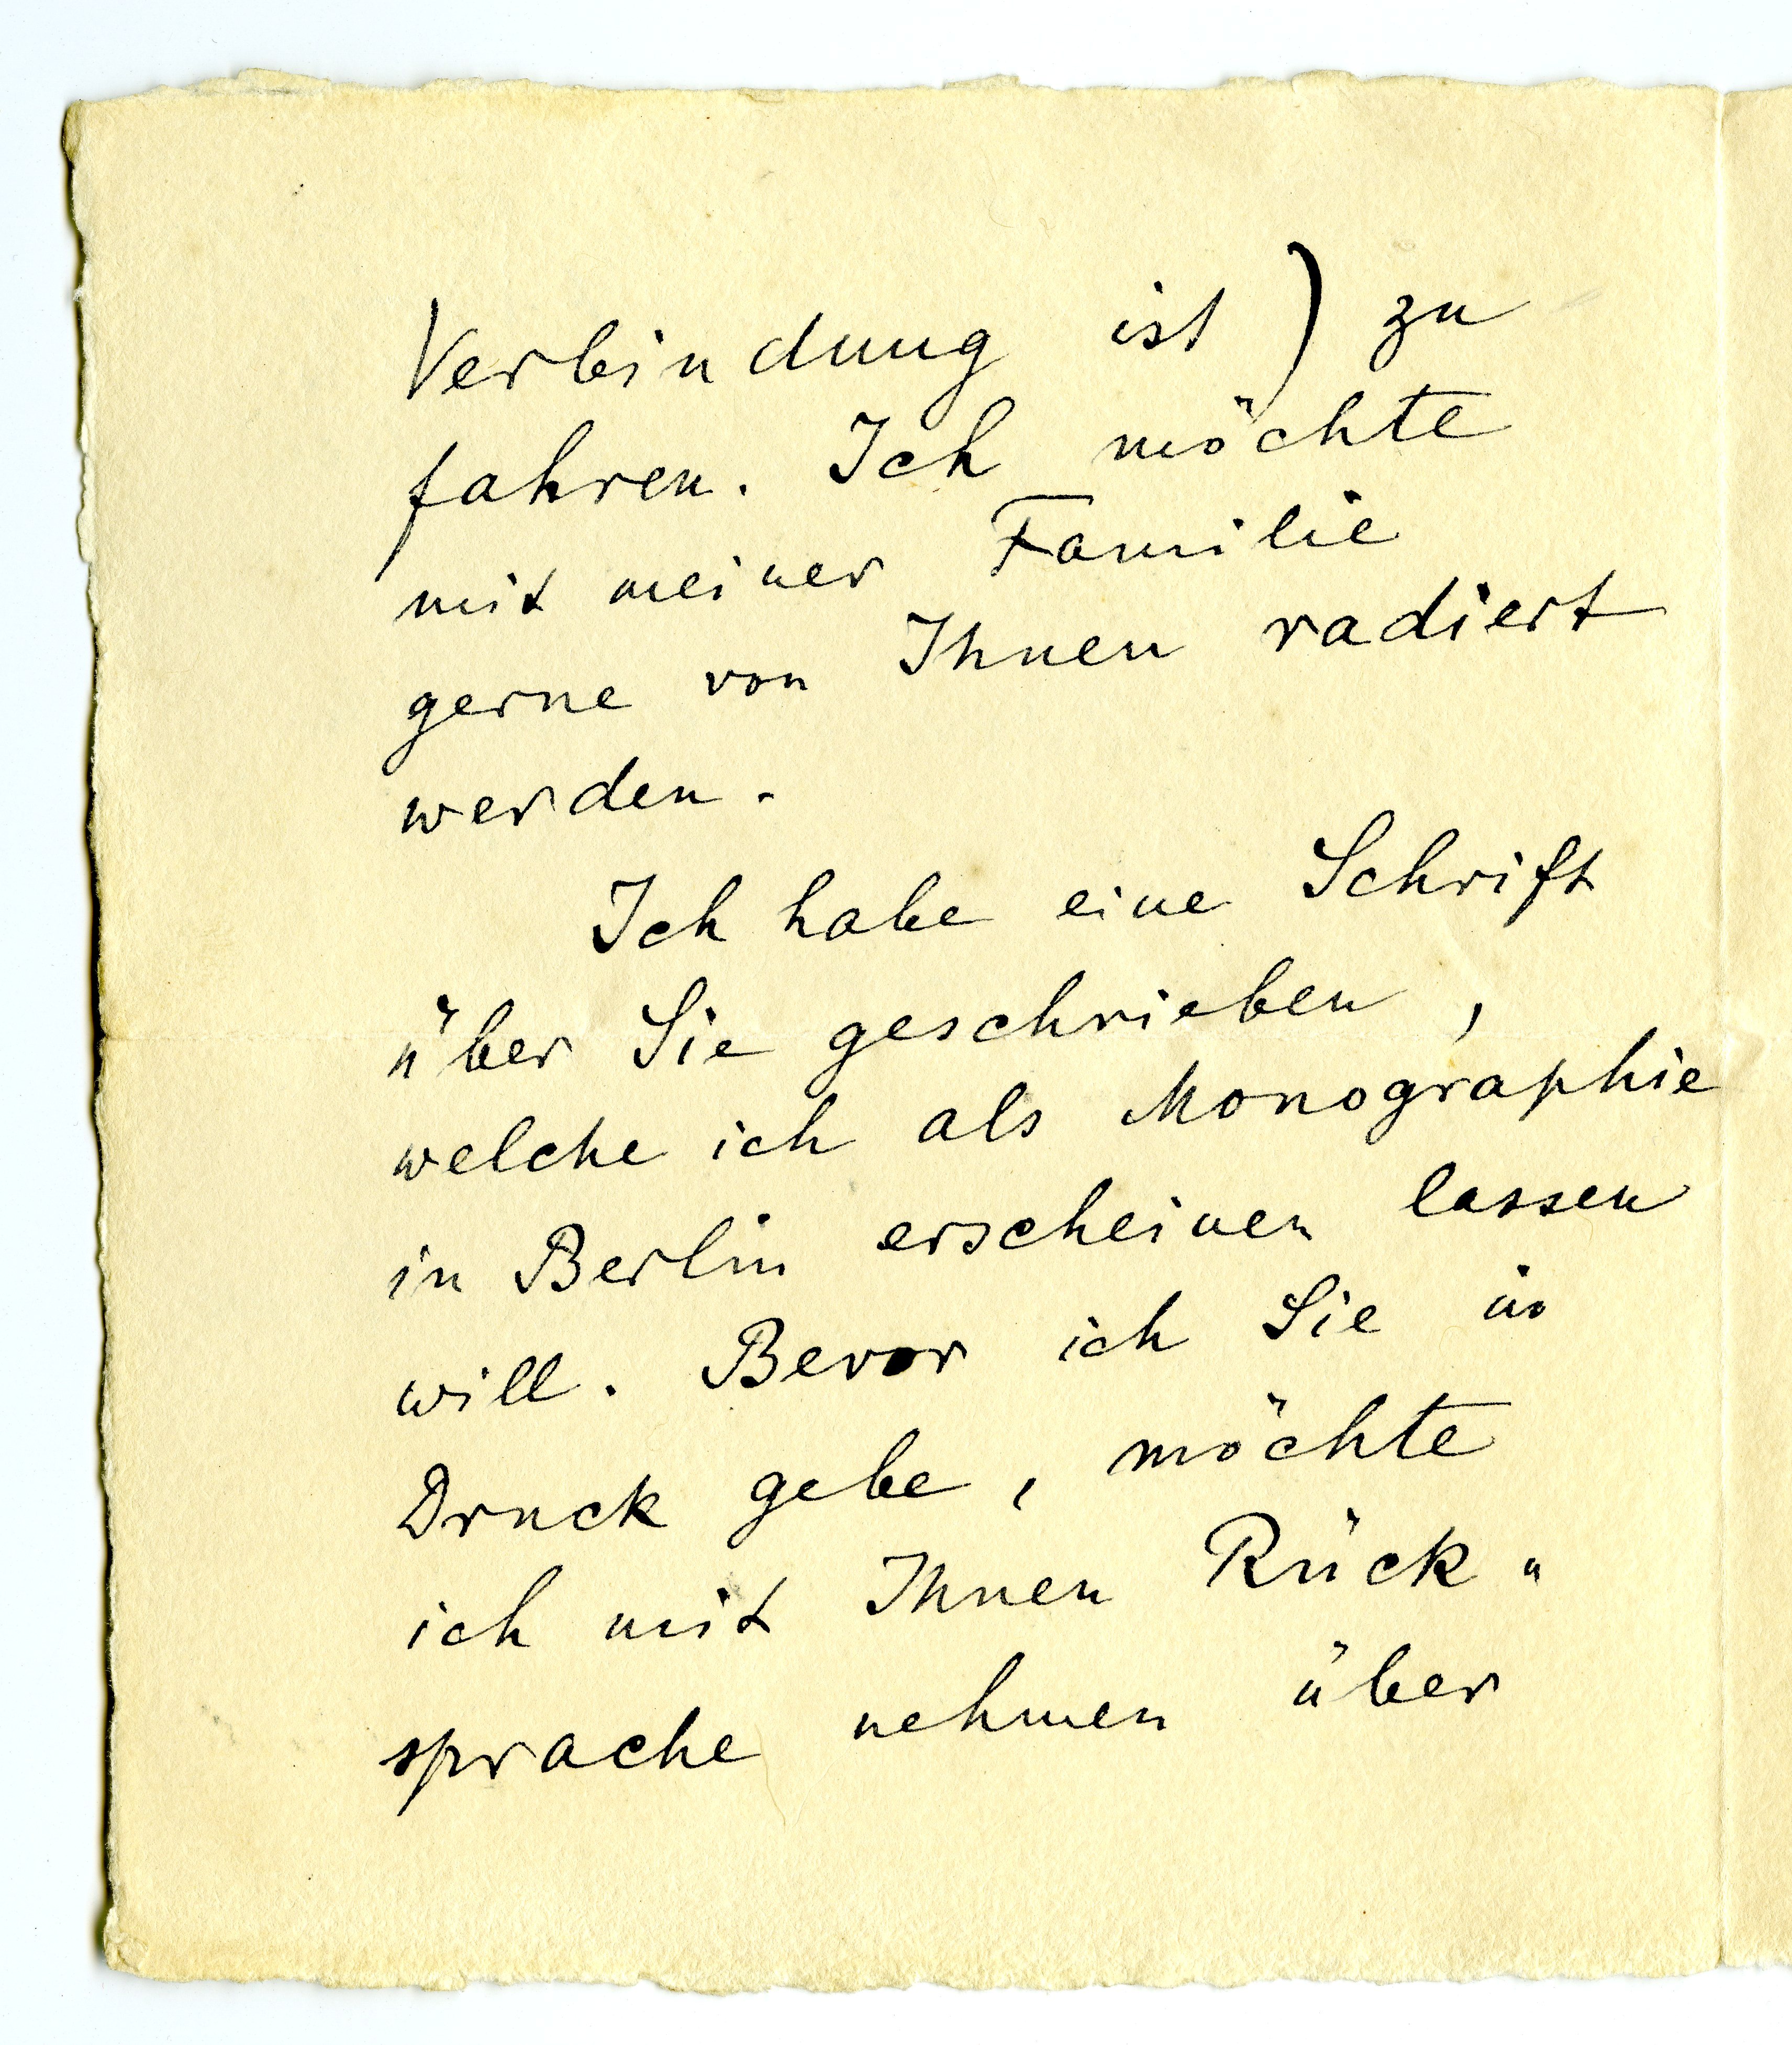 Verbindung ist) zu
fahren. Ich möchte
mit meiner Familie
gerne von Ihnen radiert
werden.
Ich habe eine Schrift
über Sie geschrieben,
welche ich als Monographie
in Berlin erscheinen lassen
will. Bevor ich Sie in
Druck gebe, möchte
ich mit Ihnen Rück"
sprache nehmen über